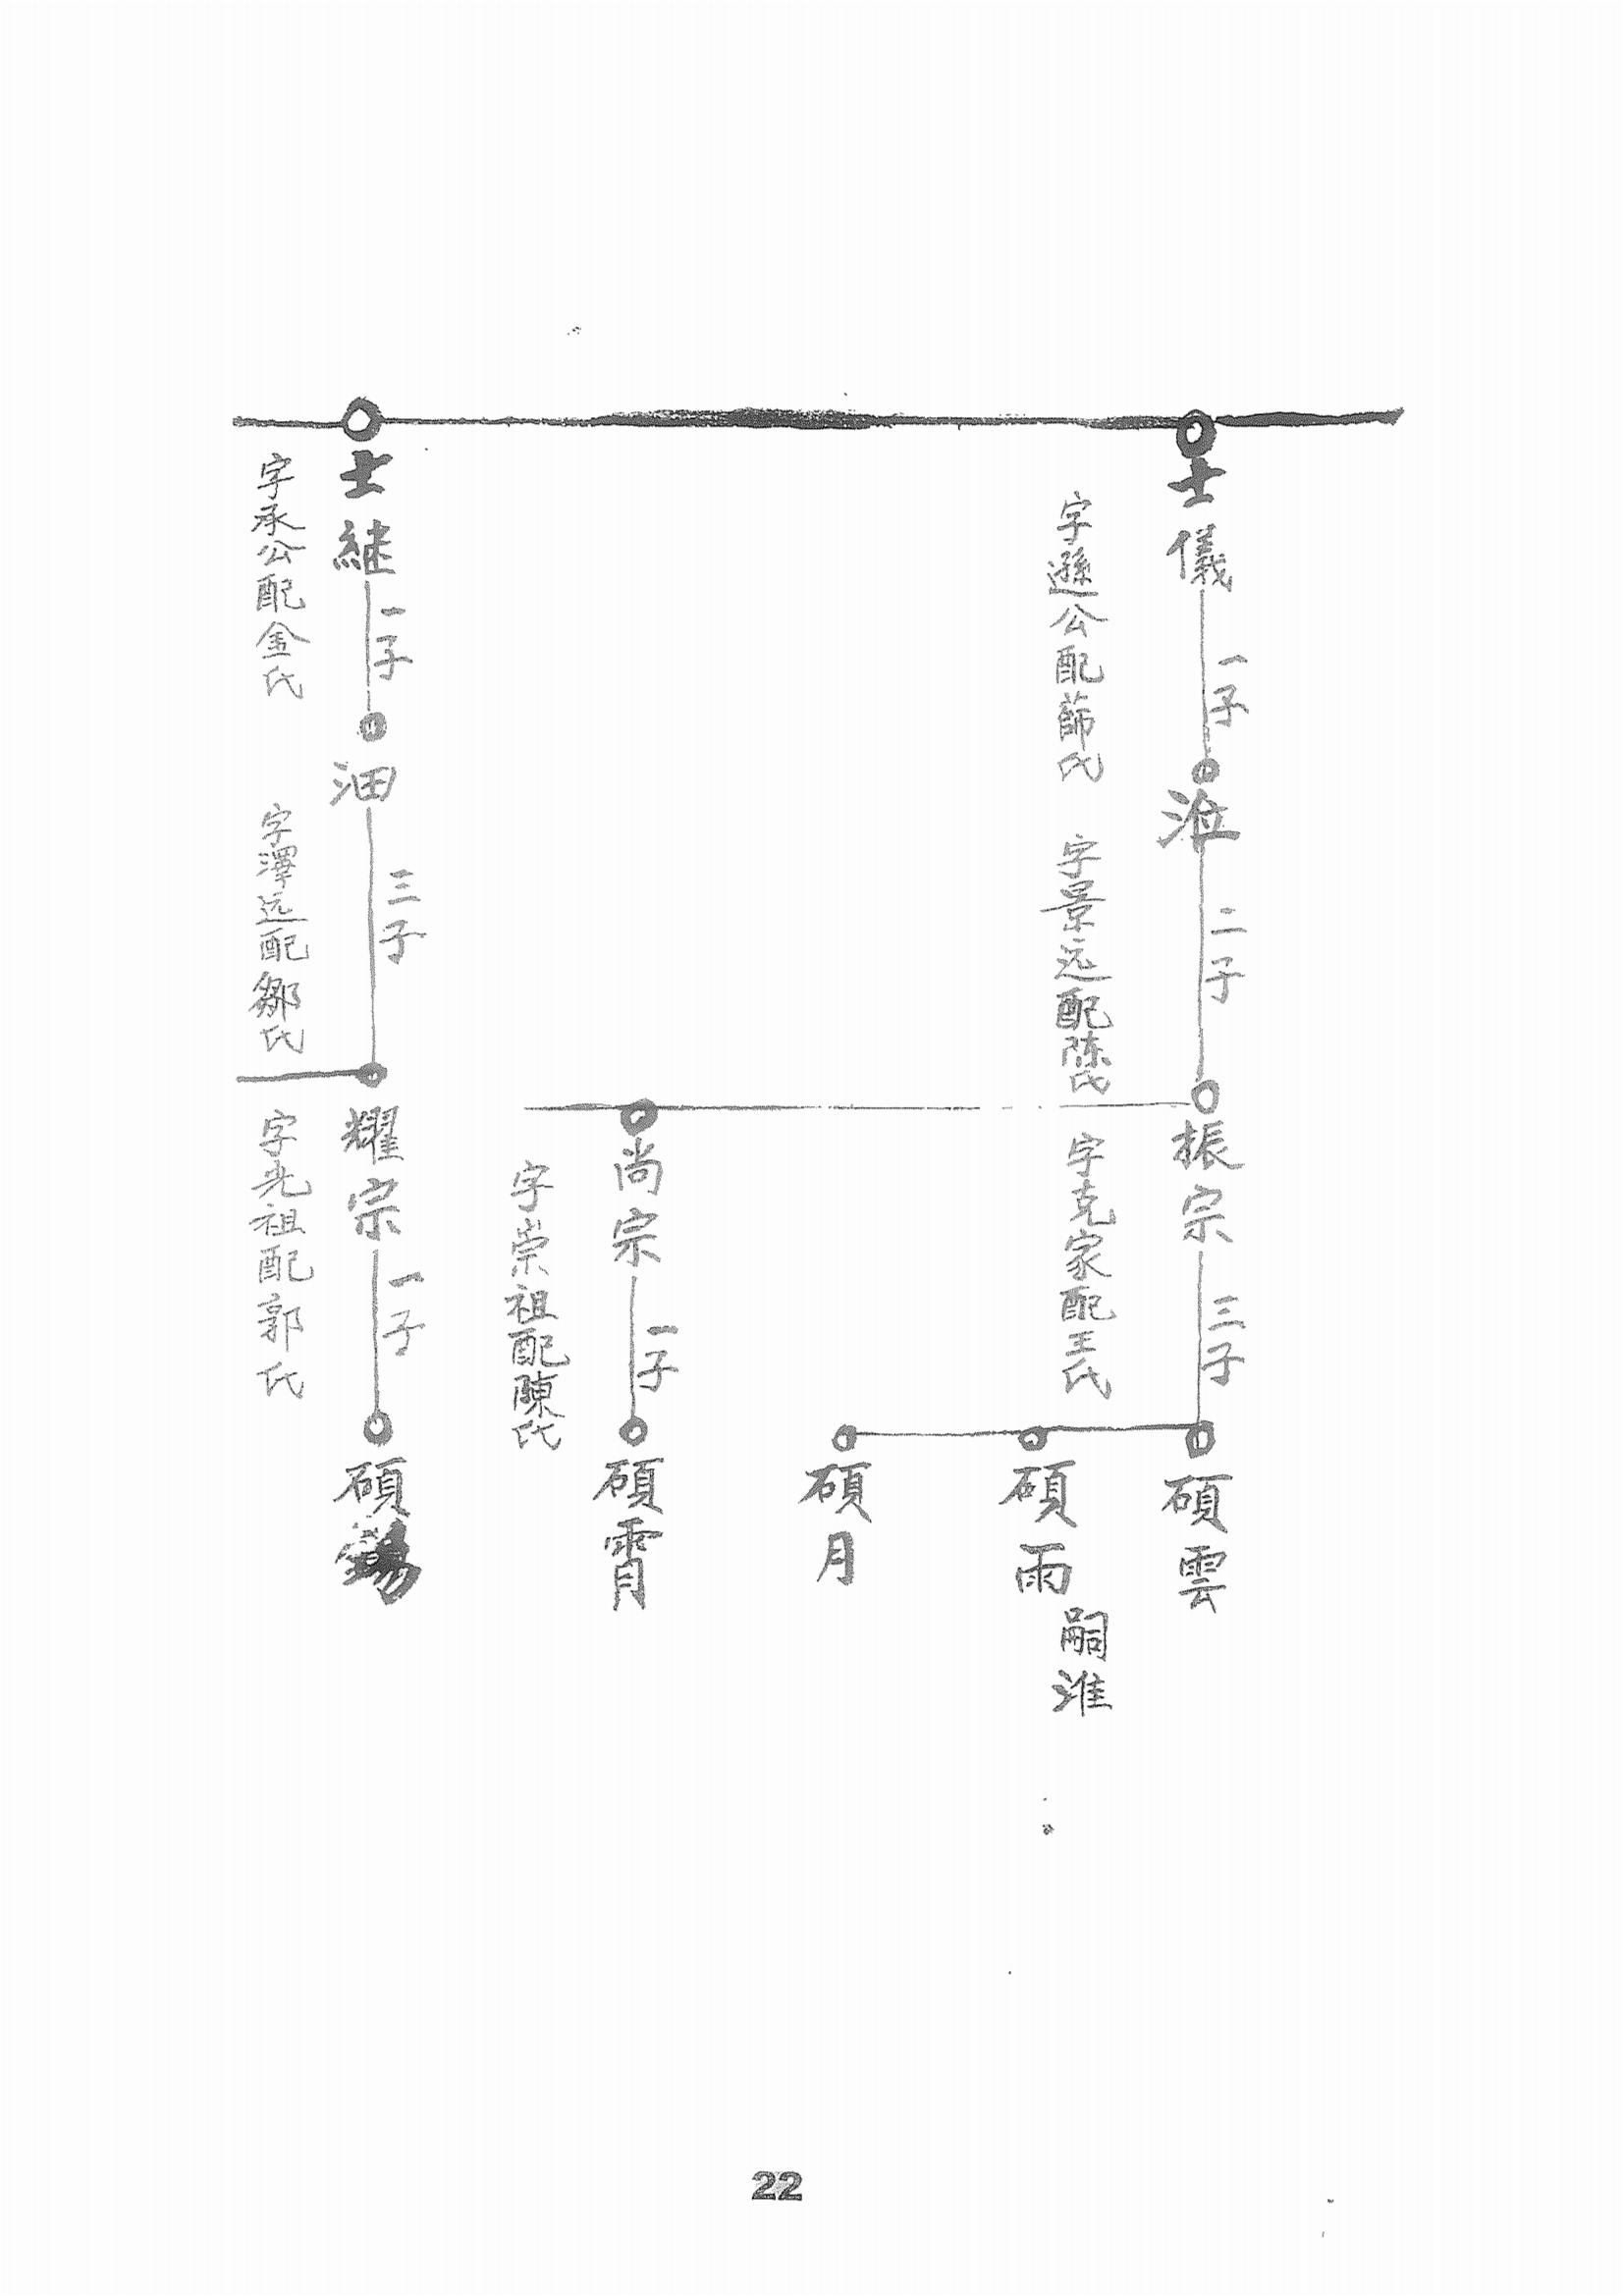 士儀
一子
字遜公配薛氏
二子
字景远配陈氏
振宗
三子
字克家配王氏
碩雲
碩雨
嗣淮
碩月
尚宗
一子
字崇祖配陳氏
碩霄
士継
一子
字承公配金氏
油
三子
字澤远配鄒氏
耀宗
一子
字光祖配郭氏
碩
22